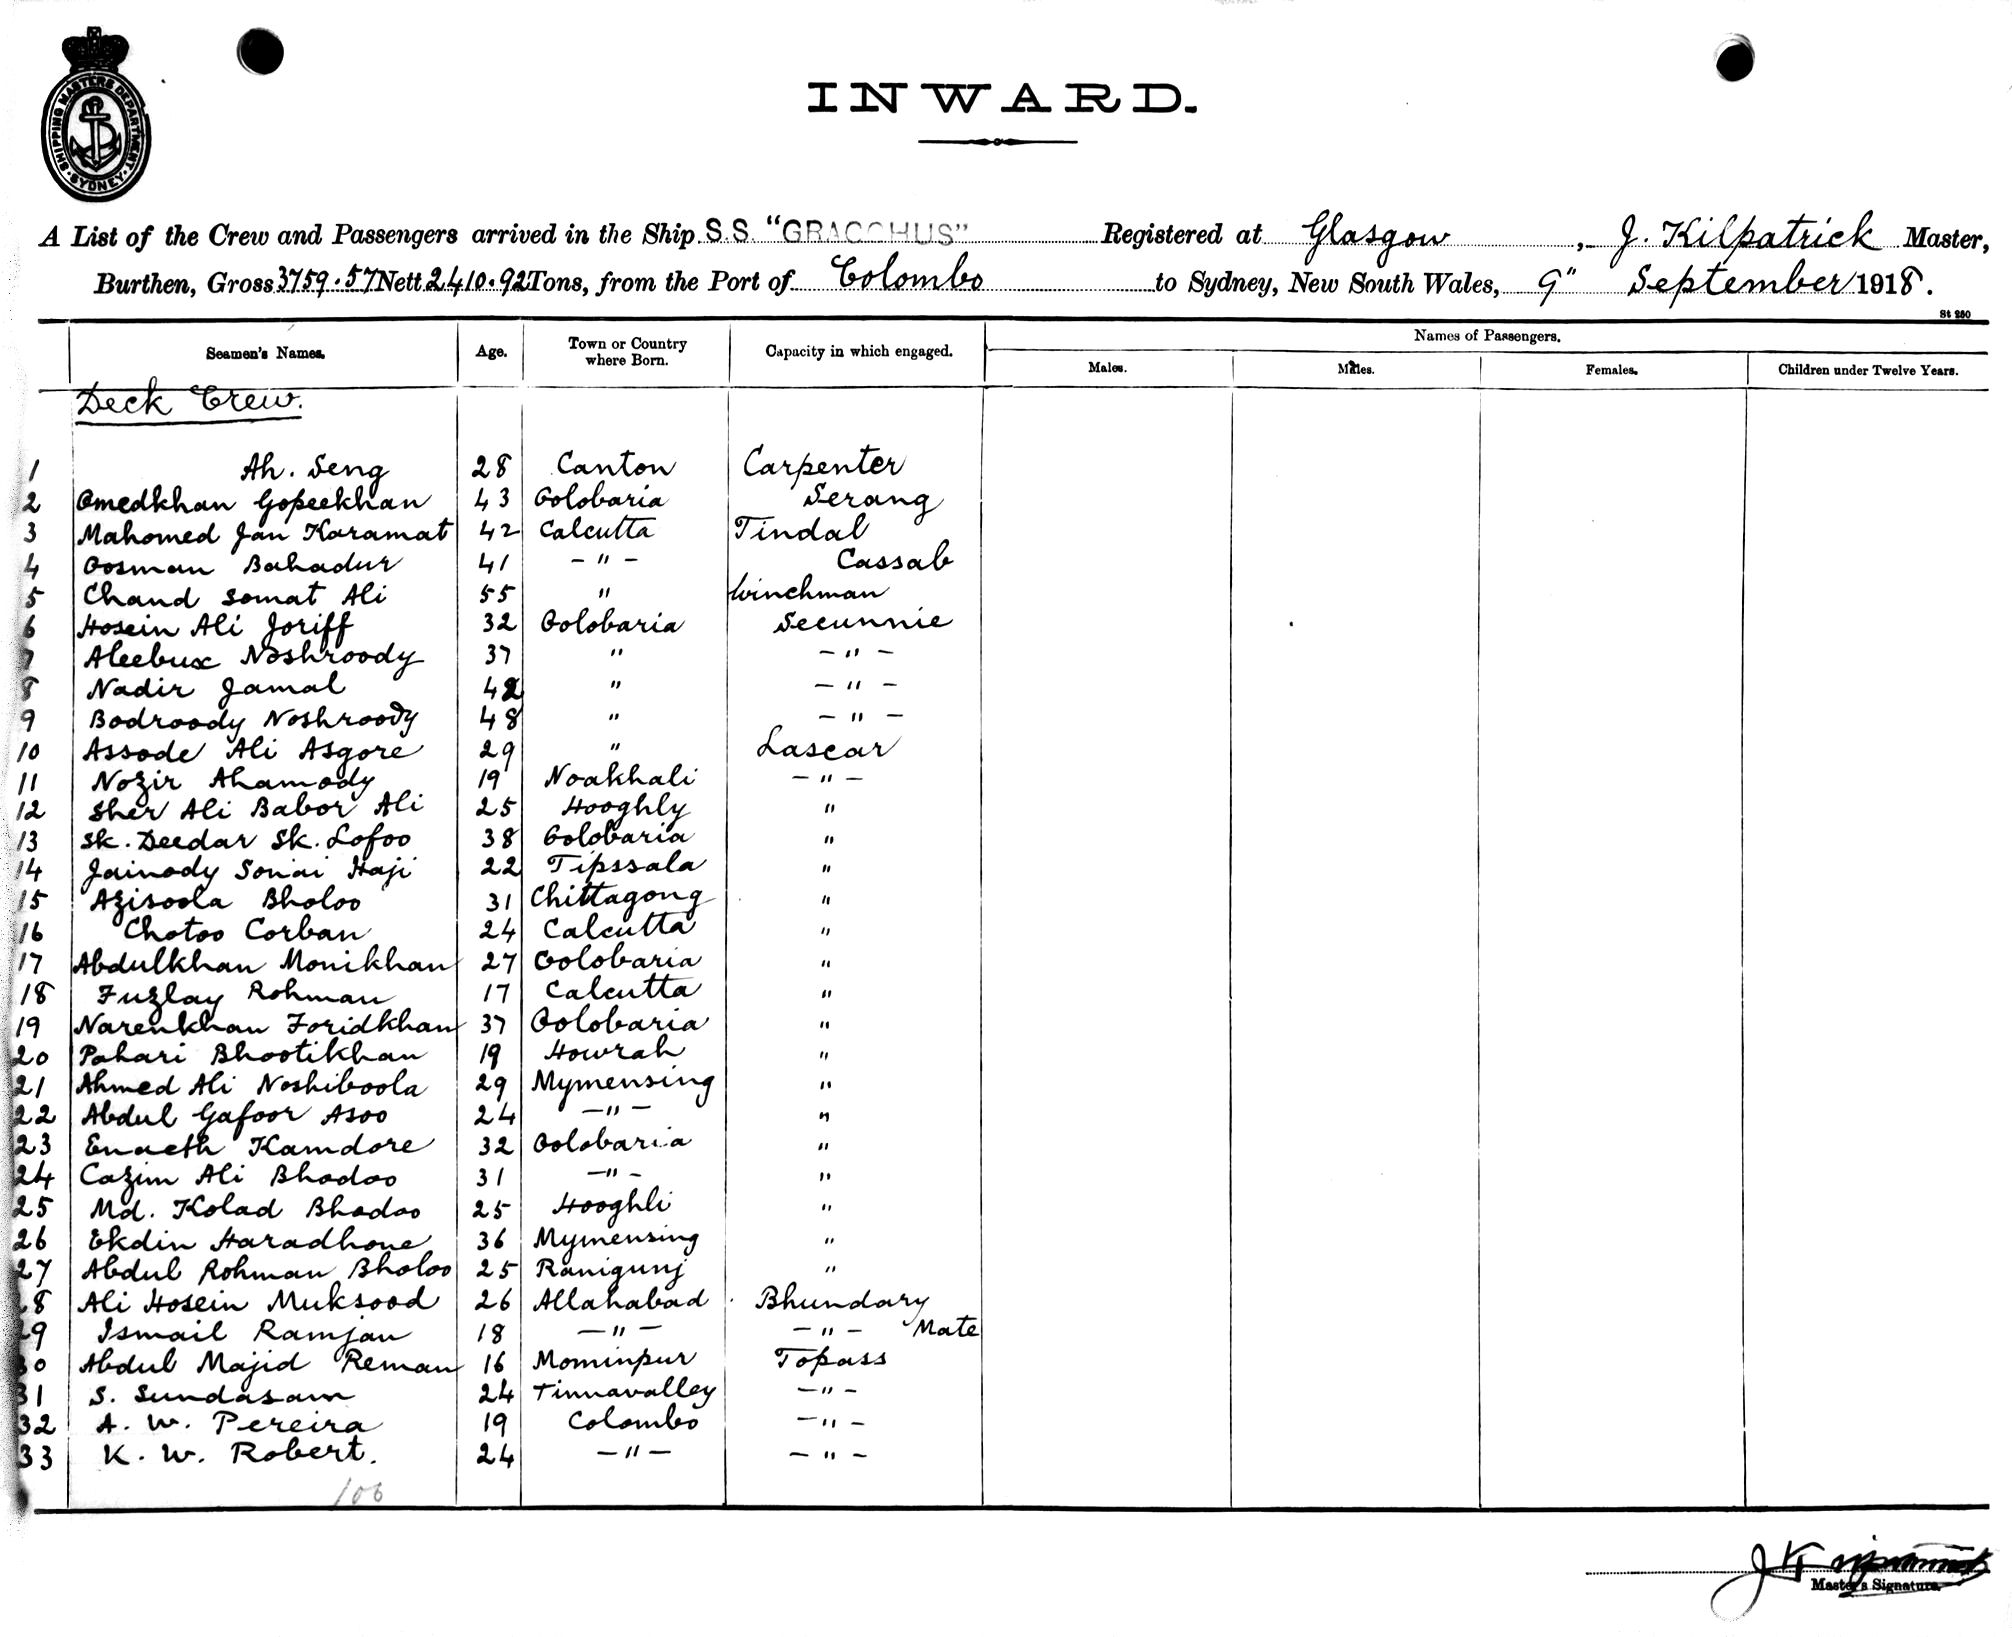 SHIPPING MASTERS DEPARTMENT SYDNEY
INWARD.
A List of the Crew and Passengers arrived in the Ship S.S. "GRACCHUS" Registered at Glasgow, J. Kilpatrick Master,
Burthen, Gross 3759.57 Nett 2410.92 Tons, from the Port of Colombo to Sydney, New South Wales, 9" September 1918.
St 280
Seamen's Names. Age. Town or Country where Born. Capacity in which engaged. Names of Passengers.
Males. Males. Females. Children under Twelve Years.
Deck Crew.
1 Ah. Seng 28 Canton Carpenter
2 Omedkhan Gopeekhan 43 Oolobaria Serang
3 Mahomed Jan Karamat 42 Calcutta Tindal
4 Oosman Bahadur 41 - " - Cassab
5 Chand Somat Ali 55 " Winchman
6 Hosein Ali Joriff 32 Oolobaria Secunnie
7 Aleebux Noshroody 37 " - " -
8 Nadir Jamal 42 " - " -
9 Bodroody Noshroody 48 " - " -
10 Assode Ali Asgore 29 " Lascar
11 Nozir Ahamody 19 Noakhali - " -
12 Sher Ali Babor Ali 25 Hooghly "
13 Sk. Deedar Sk. Lofoo 38 Oolobaria "
14 Jainody Sonai Haji 22 Tipssala "
15 Azisoola Bholoo 31 Chittagong "
16 Chotoo Corban 24 Calcutta "
17 Abdulkhan Monikhan 27 Oolobaria "
18 Fuzlay Rohman 17 Calcutta "
19 Narenkhan Foridkhan 37 Oolobaria "
20 Pahari Bhootikhan 19 Howrah "
21 Ahmed Ali Noshiboola 29 Mymensing "
22 Abdul Gafoor Asoo 24 - " - "
23 Enaeth Kamdore 32 Oolobaria "
24 Cazim Ali Bhodoo 31 - " - "
25 Md. Kolad Bhodoo 25 Hooghli "
26 Ekdin Haradhone 36 Mymensing "
27 Abdul Rohman Bholoo 25 Ranigunj "
28 Ali Hosein Muksood 26 Allahabad Bhundary
29 Ismail Ramjan 18 - " - - " - Mate
30 Abdul Majid Reman 16 Mominpur Topass
31 S. Sundasam 24 Tinnavalley - " -
32 A. W. Pereira 19 Colombo - " -
33 K. W. Robert. 24 - " - - " -
106
Master's Signature.